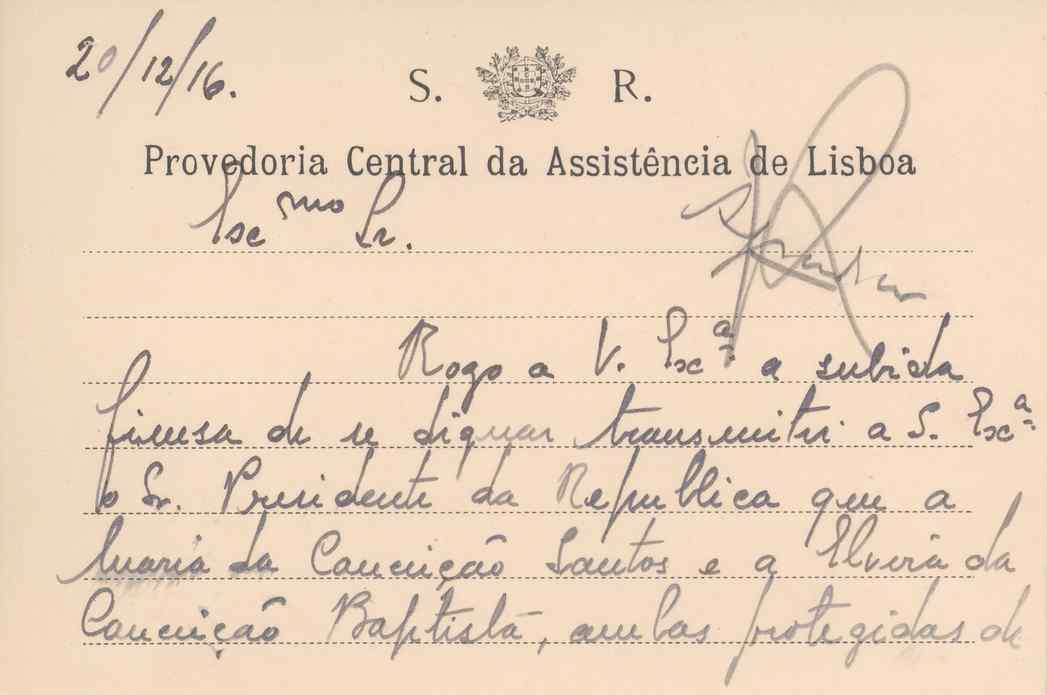 20/12/16.
S. R.
Provedoria Central da Assistência de Lisboa
Exc.mo Sr.
Rogo a V. Exc.ª a subida
fineza de se dignar transmitir a S. Exc.ª
o Sr. Presidente da Republica que a
Maria da Conceição Santos e a Elvira da
Conceição Baptista, ambas protegidas de